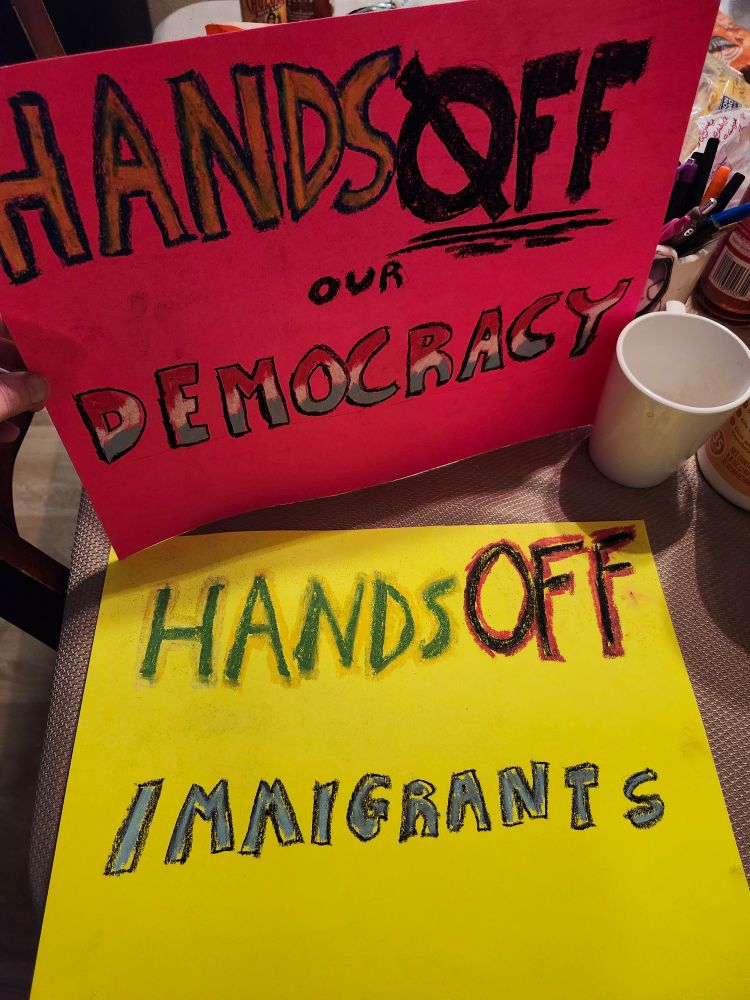 HANDS OFF
OUR
DEMOCRACY
HANDS OFF
IMMIGRANTS